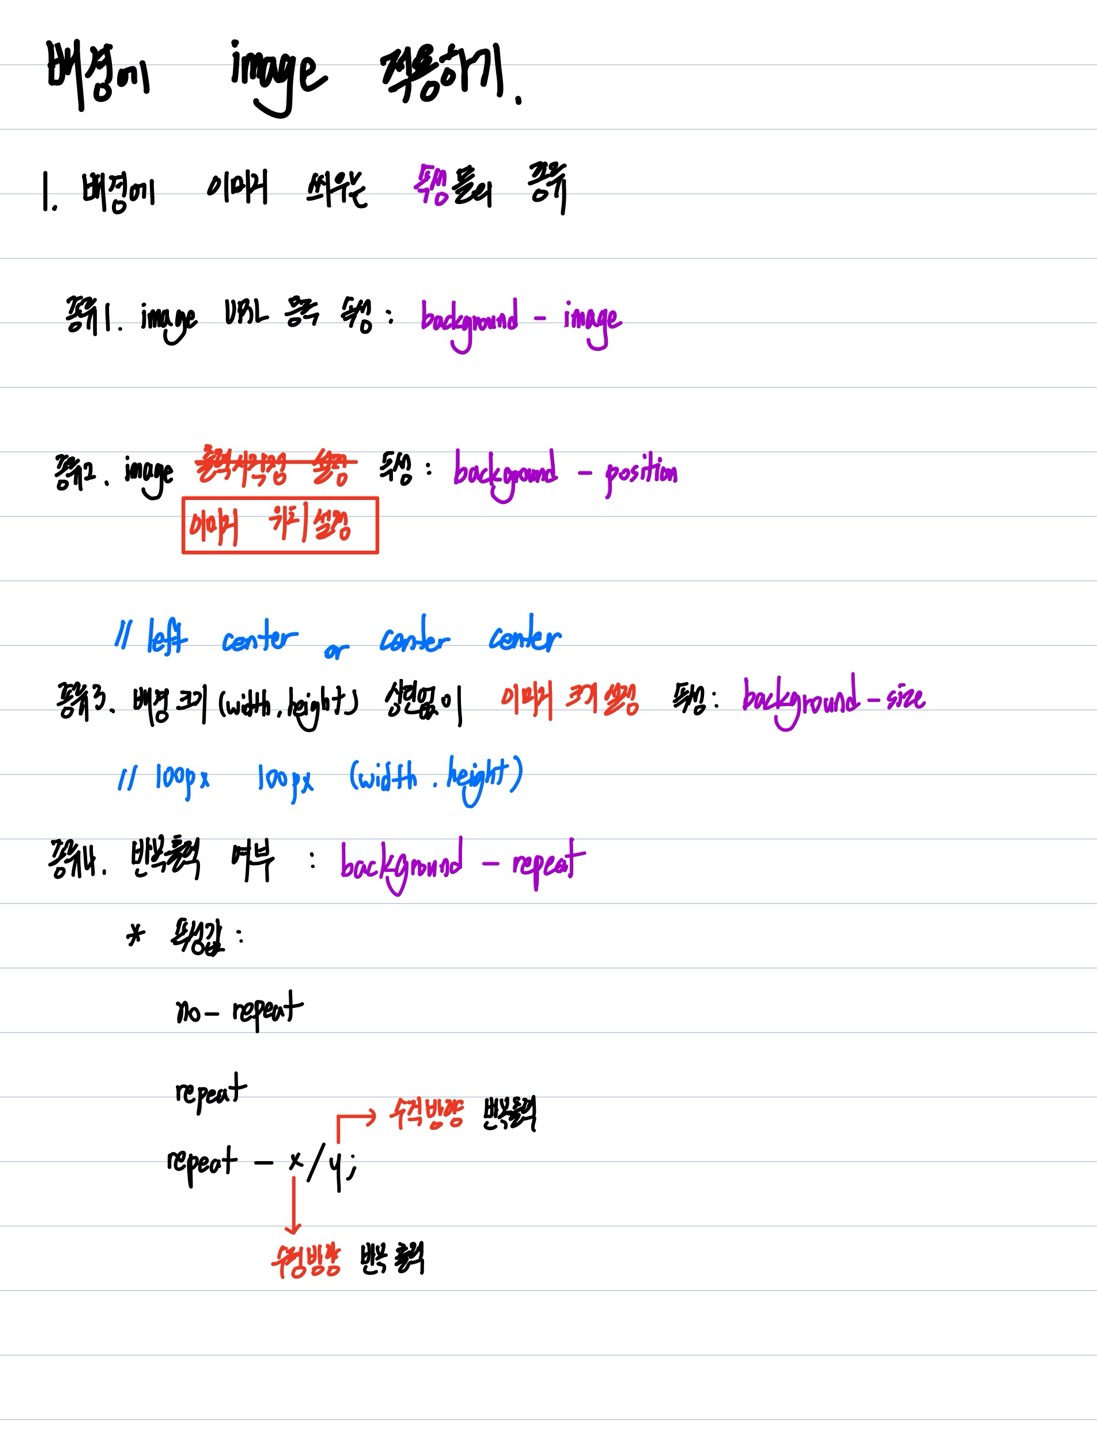 배경에 image 적용하기.
1. 배경에 이미지 씌우는 특성들의 종류
종류1. image URL 등록 특성 : background - image
종류2. image 출력시작점 설정 특성 : background - position
이미지 위치 설정
// left center or center center
종류3. 배경 크기 (width, height) 상관없이 이미지 크기 설정 특성 : background - size
// 100px 100px (width, height)
종류4. 반복출력 여부 : background - repeat
* 특성값 :
no - repeat
repeat
수직방향 반복출력
repeat - x/y;
수평방향 반복 출력